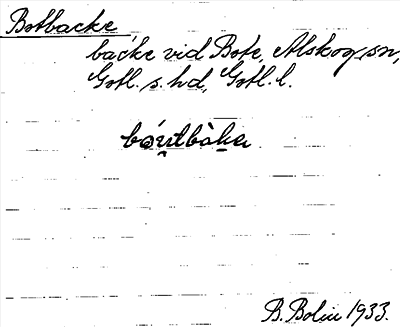 Botbacke
backe vid Bote, Alskog sn,
Gotl. s. hd, Gotl. l.
bóu̯tbàka
B. Bolin 1933.